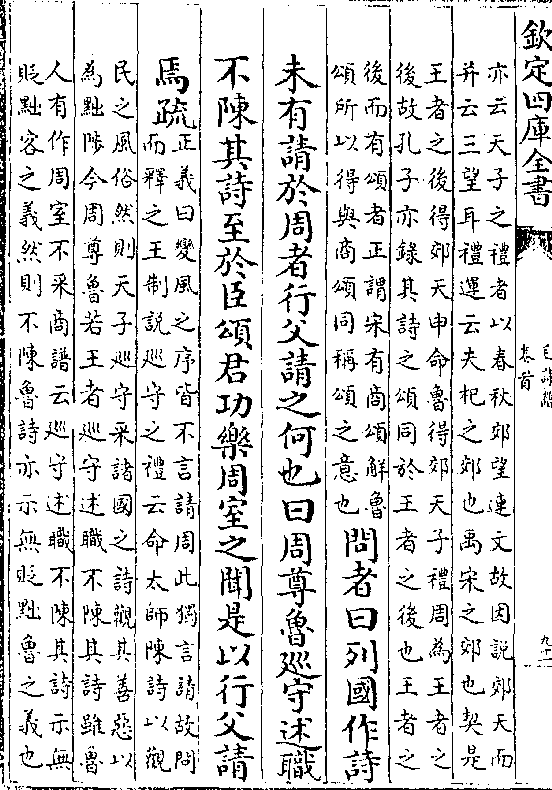 欽定四庫全書
毛詩譜
卷首
九十一
亦云天子之禮者以春秋郊望連文故因説郊天而
并云三望耳禮運云夫杞之郊也禹宋之郊也契是
王者之後得郊天申命魯得郊天子禮周為王者之
後故孔子亦錄其詩之頌同於王者之後也王者之
後而有頌者正謂宋有商頌解魯
頌所以得與商頌同稱頌之意也
問者曰列國作詩
未有請於周者行父請之何也曰周尊魯廵守述職
不陳其詩至於臣頌君功樂周室之聞是以行父請
焉疏
正義曰變風之序皆不言請周此獨言請故問
而釋之王制説廵守之禮云命太師陳詩以觀
民之風俗然則天子廵守采諸國之詩觀其善惡以
為黜陟今周尊魯若王者廵守述職不陳其詩雖魯
人有作周室不采商譜云廵守述職不陳其詩亦無
貶黜客之義然則不陳魯詩亦示無貶黜魯之義也